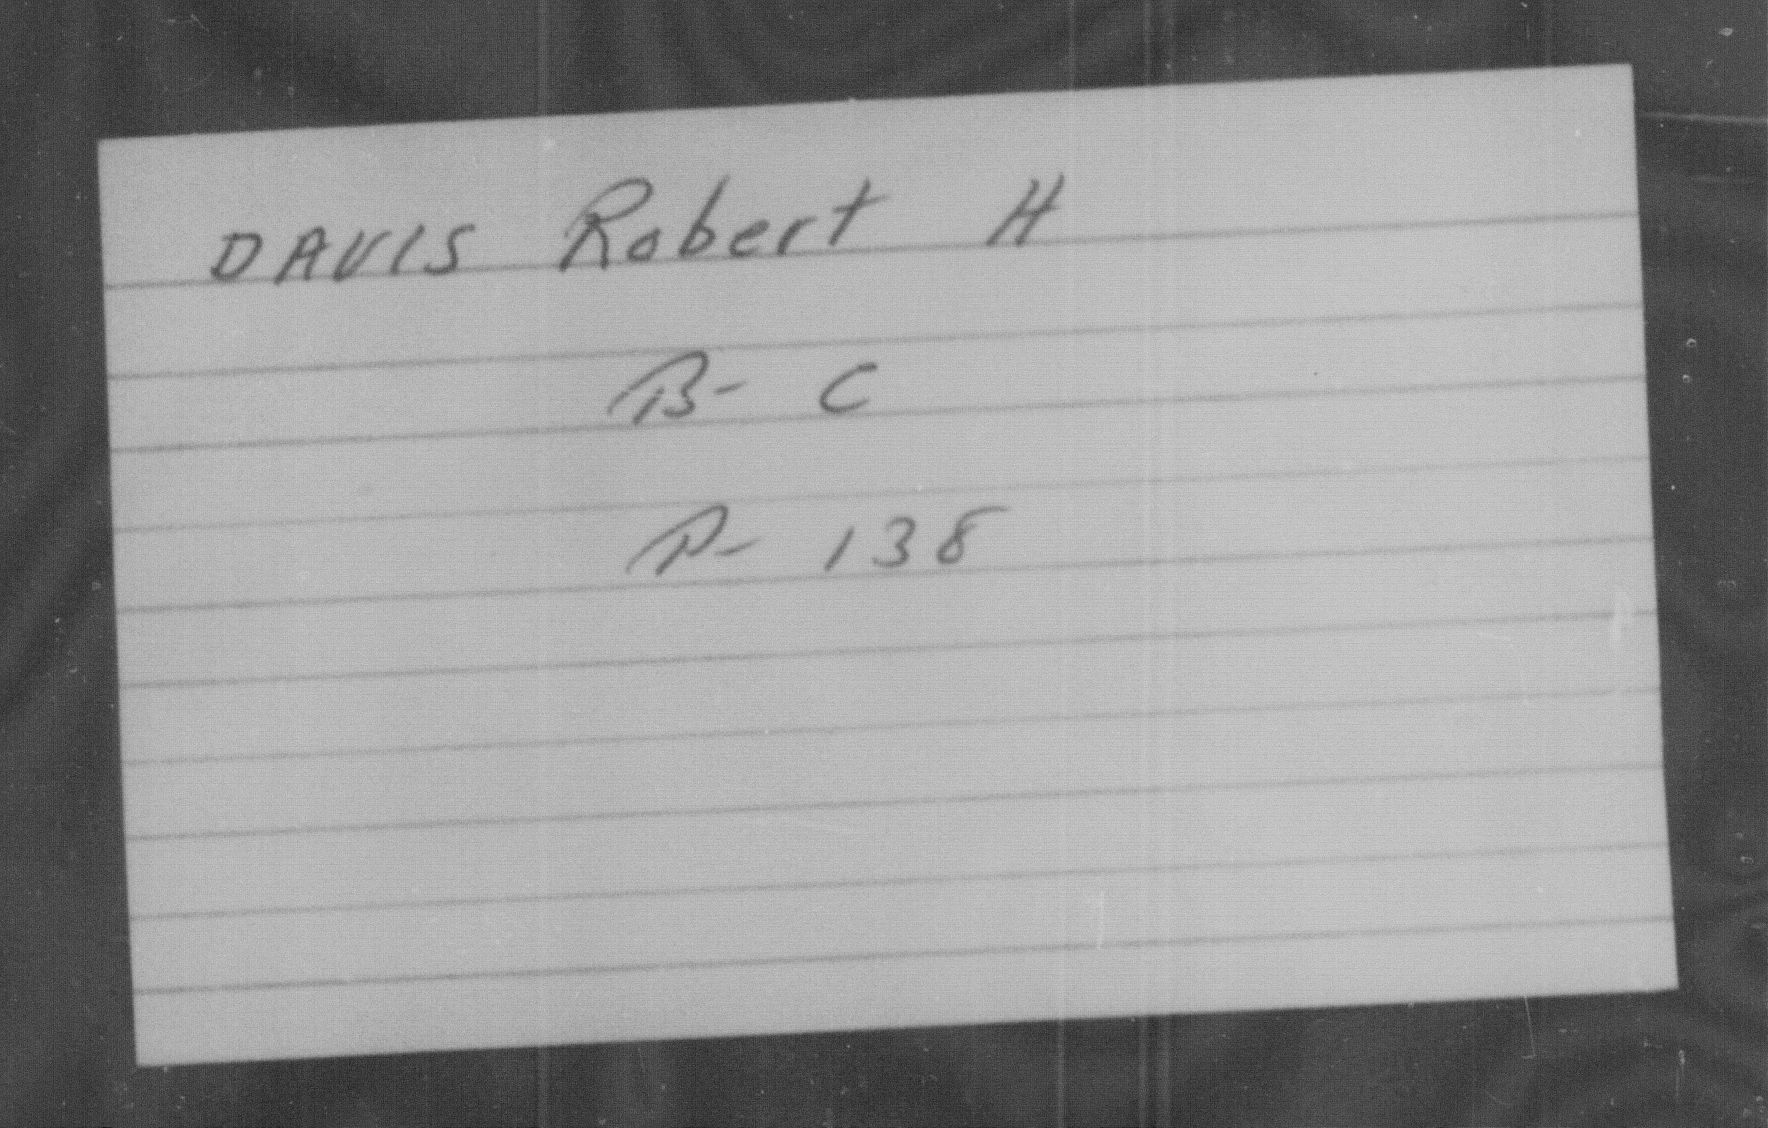 DAVIS Robert H
B- C
P- 138